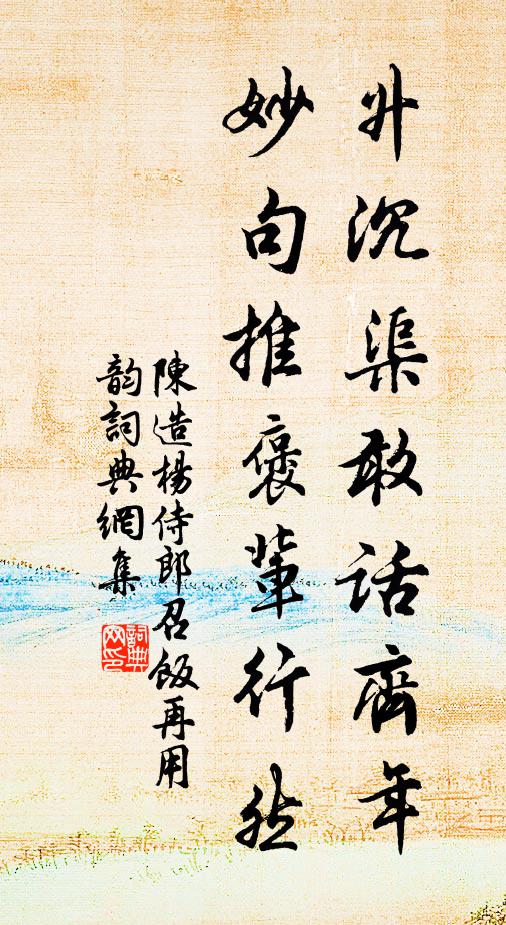 升沉渠敢話齊年
妙句推褒輩行然
陳造楊侍郎召飯再用
韵詞典網集
詞典
网印